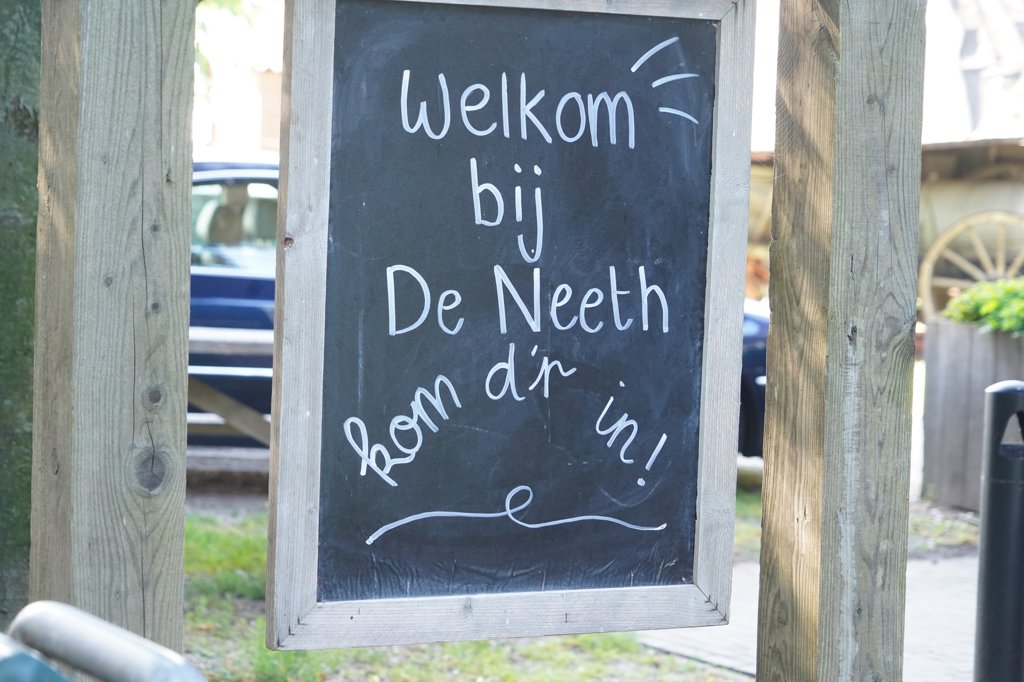 Welkom
bij
De Neeth
kom d'r in!